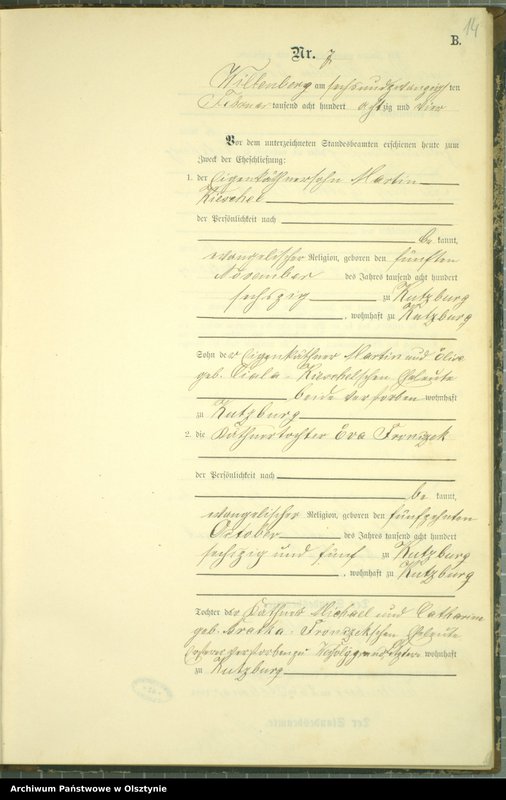 14
B.
Nr. 7
Willenberg am sechsundzwanzigsten
Februar tausend acht hundert achtzig und vier
Vor dem unterzeichneten Standesbeamten erschienen heute zum
Zweck der Eheschließung:
1. der Eigenkäthnersohn Martin
Kieschel
der Persönlichkeit nach
be kannt,
evangelischer Religion, geboren den fünften
November des Jahres tausend acht hundert
sechszig zu Kutzburg
, wohnhaft zu Kutzburg
Sohn der Eigenkäthner Martin und
geb. Kieschelschen Eheleute
beide verstorben wohnhaft
zu Kutzburg
2. die Käthnertochter Eva Fronzek
der Persönlichkeit nach
be kannt,
evangelischer Religion, geboren den fünfzehnten
October des Jahres tausend acht hundert
sechszig und fünf zu Kutzburg
, wohnhaft zu Kutzburg
Tochter der Käthner Michael und Catharine
geb. Fronzekschen Eheleute
verstorben zu und letztere wohnhaft
zu Kutzburg
Archiwum Państwowe w Olsztynie